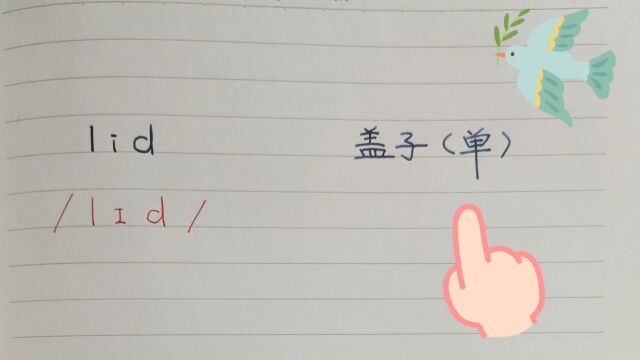 lid 盖子(单)
/lɪd/